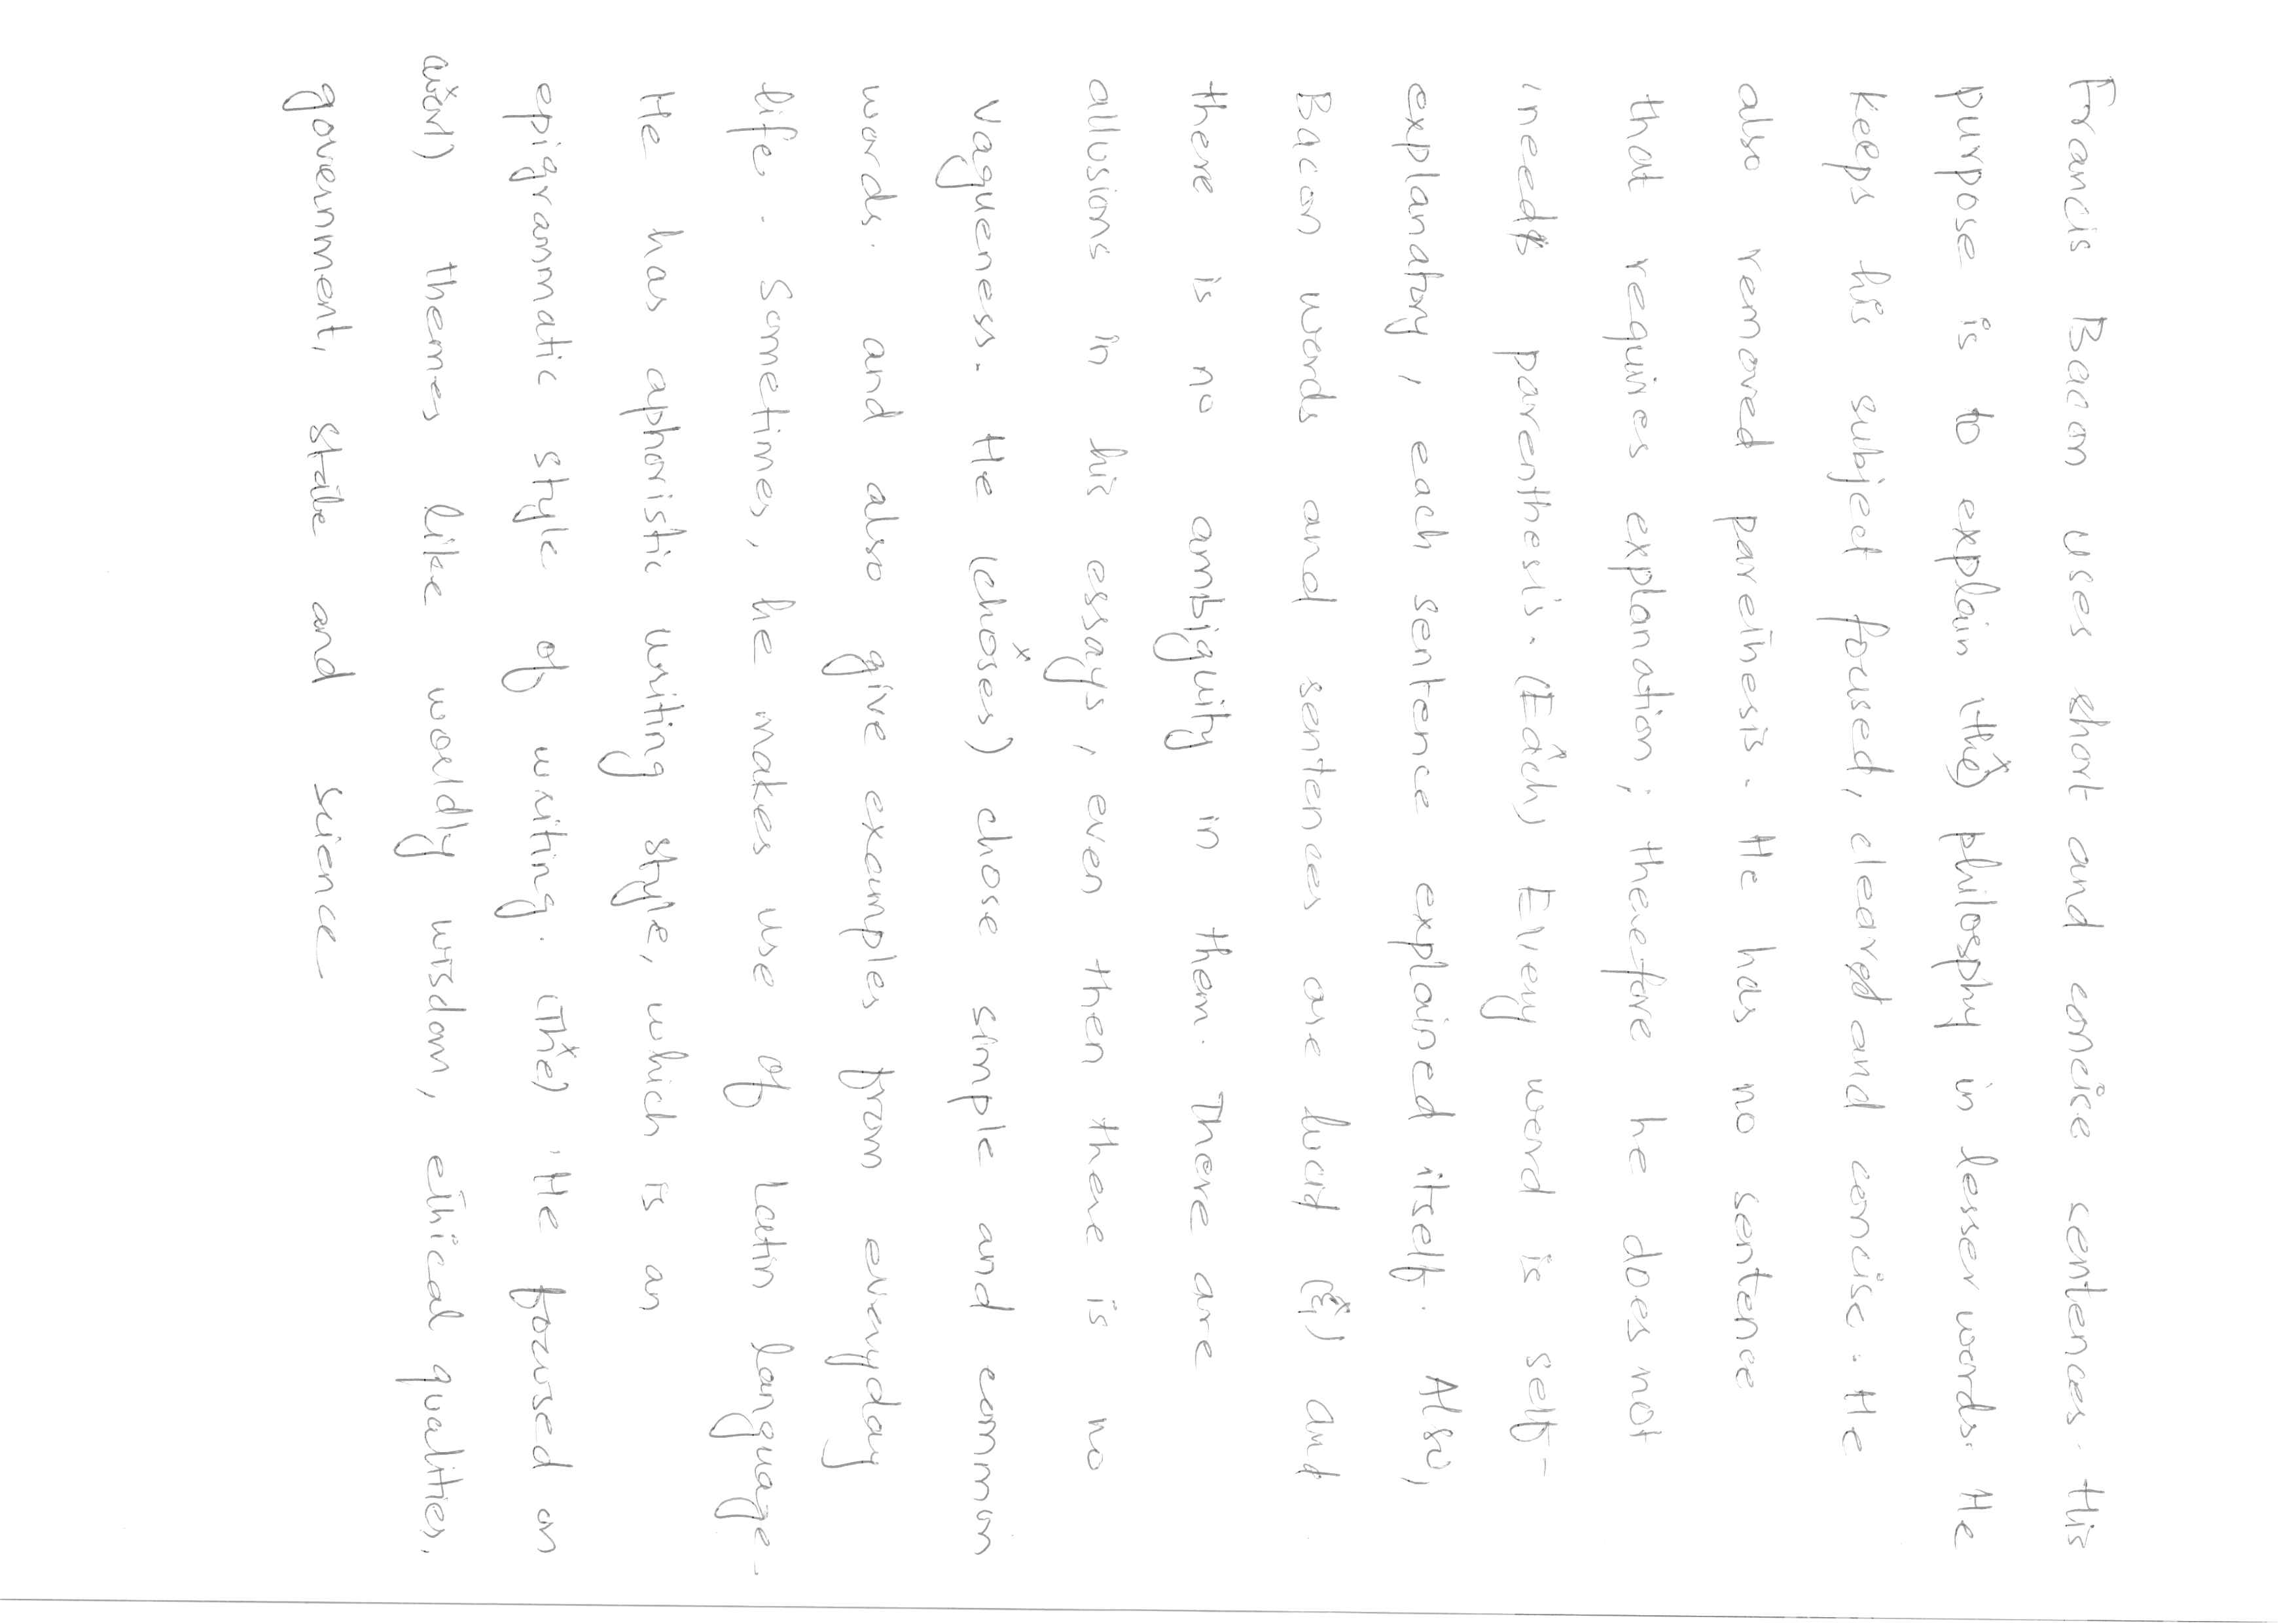 Francis Bacon uses short and concise sentences. His
purpose is to explain (the) philosphy in lesser words. He
keeps his subject foused, clear and concise. He
also removed parethesis. He has no sentence
that requires explanation; therefore he does not
need parenthesis. (Each) Every word is self-
explanatory, each sentence explained itself. Also,
Bacon words and sentences are lucid (&) and
there is no ambiguity in them. There are
allusions in his essays, even then there is no
vagueness. He (choses) chose simple and common
words. and also give examples from everyday
life. Sometimes, he makes use of Latin language.
He has aphoristic writing style, which is an
epigrammatic style of writing. (The) He focused on
(worl) themes like worldly wisdom, ethical qualities,
government, state and science